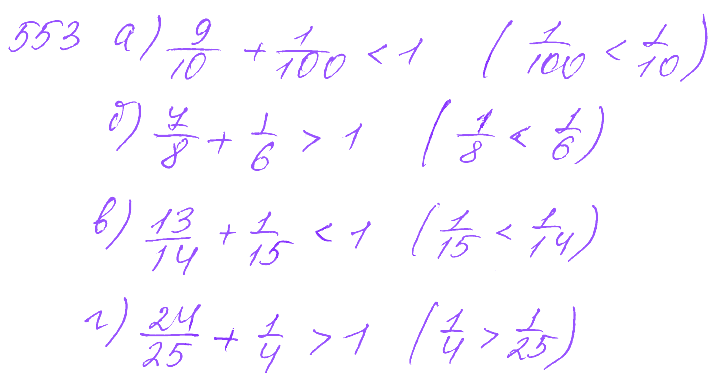 553 а) 9/10 + 1/100 < 1 (1/100 < 1/10)
б) 7/8 + 1/6 > 1 (1/8 < 1/6)
в) 13/14 + 1/15 < 1 (1/15 < 1/14)
г) 24/25 + 1/4 > 1 (1/4 > 1/25)